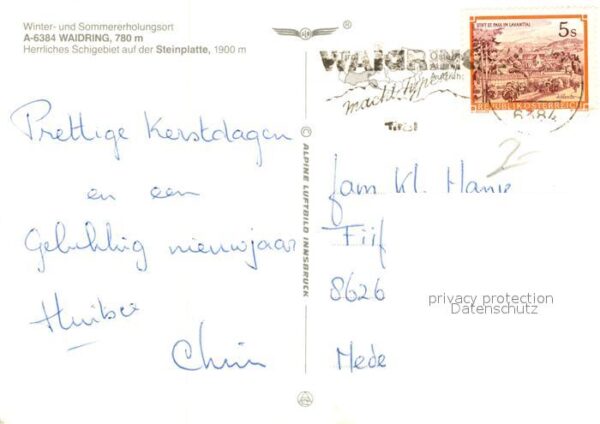 Winter- und Sommererholungsort
A-6384 WAIDRING, 780 m
Herrliches Schigebiet auf der Steinplatte, 1900 m
WAIDRING
macht
Tirol
STIFT ST. PAUL IM LAVANTTAL
5s
REPUBLIK ÖSTERREICH
6384
Prettige Kerstdagen
en een
Gelukkig nieuwjaar
ALPINE LUFTBILD INNSBRUCK
fam Kl.
8626
Mede
privacy protection
Datenschutz